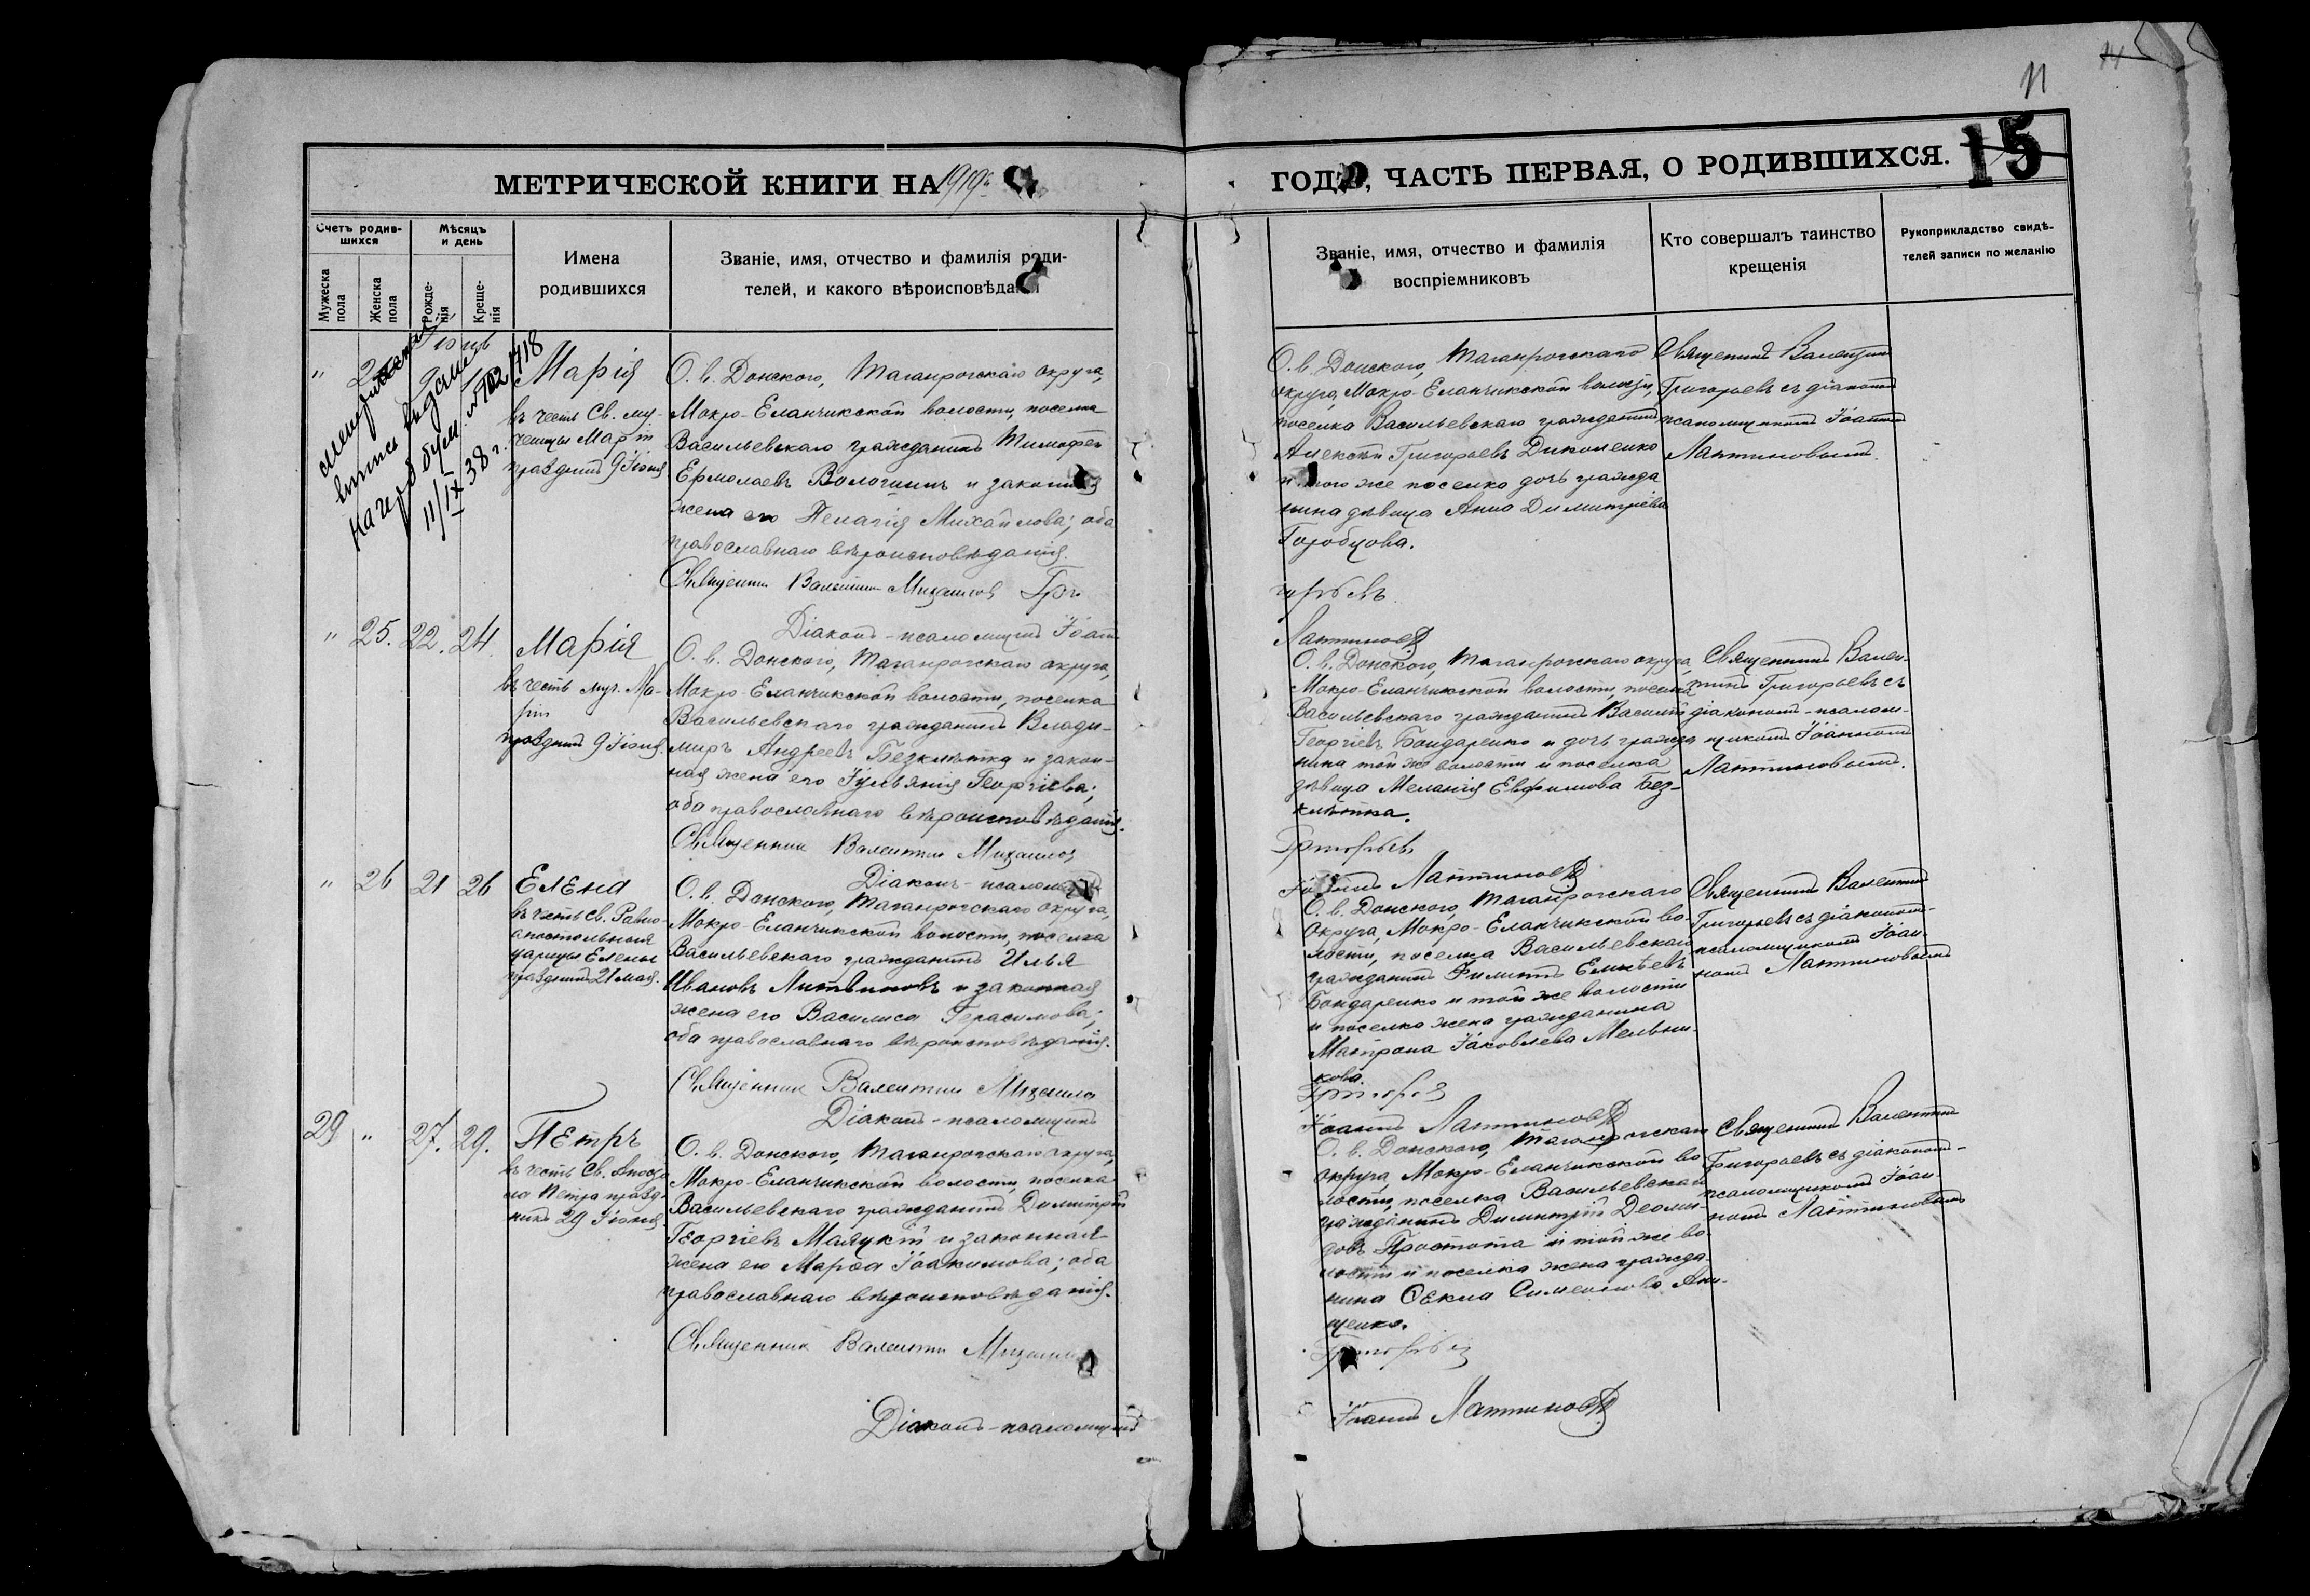 11
15
МЕТРИЧЕСКОЙ КНИГИ НА 1919 г.
ГОДЪ, ЧАСТЬ ПЕРВАЯ, О РОДИВШИХСЯ.
Счетъ родив-
шихся
Мужеска
пола
Женска
пола
Мѣсяцъ
и день
Рожде-
нія
Креще-
нія
Имена
родившихся
Званіе, имя, отчество и фамилія роди-
телей, и какого вѣроисповѣданія
Званіе, имя, отчество и фамилія
воспріемниковъ
Кто совершалъ таинство
крещенія
Рукоприкладство свидѣ-
телей записи по желанію
выпись выдана
на герб. бум. № 702718
11/IX 38 г.
"
Марія
въ честь Св. му-
ченицы Маріи
праздникъ 9 Іюня
О. в. Донского, Таганрогскаго округа,
Мокро-Еланчикской волости, поселка
Васильевскаго гражданинъ Тимофей
Ермолаевъ Вологинъ и законная
жена его Пелагія Михайлова; оба
православнаго вѣроисповѣданія.
Священникъ Валентинъ Михаиловъ Гри
Діаконъ-псаломщикъ Іоан
О. в. Донского, Таганрогскаго
округа, Мокро-Еланчикской волости,
поселка Васильевскаго гражданинъ
Алексѣй Григорьевъ Диколенко
и того же поселка дочь гражда
нина дѣвица Анна Димитріева
Горобцова.
горьевъ
Лантиновъ
Священникъ Валентинъ
Григорьевъ съ діакономъ
псаломщикомъ Іоанномъ
Лантиновымъ.
" 25. 22. 24.
Марія
въ честь муч. Ма-
ріи
праздникъ 9 Іюня.
О. в. Донского, Таганрогскаго округа,
Мокро-Еланчикской волости, поселка
Васильевскаго гражданинъ Влади-
миръ Андреевъ Безклѣтка и закон-
ная жена его Іуліанія Георгіева;
оба православнаго вѣроисповѣданія.
Священникъ Валентинъ Михаилов
Діаконъ-псаломщикъ
О. в. Донского, Таганрогскаго округа,
Мокро-Еланчикской волости, поселка
Васильевскаго гражданинъ Василій
Георгіевъ Бондаренко и дочь гражда
нина той же волости и поселка
дѣвица Меланія Евфимова Без-
клѣтка.
Григорьевъ
Іоаннъ Лантиновъ
Священникъ Вален-
тинъ Григорьевъ съ
діакономъ-псалом-
щикомъ Іоанномъ
Лантиновымъ.
" 26 21 26
Елена
въ честь Св. Равно-
апостольныя
царицы Елены
праздникъ 21 мая.
О. в. Донского, Таганрогскаго округа,
Мокро-Еланчикской волости, поселка
Васильевскаго гражданинъ Илья
Ивановъ Литвиновъ и законная
жена его Василиса Герасимова;
оба православнаго вѣроисповѣданія.
Священникъ Валентинъ Михаилов
Діаконъ-псаломщикъ
О. в. Донского, Таганрогскаго
округа, Мокро-Еланчикской во-
лости, поселка Васильевскаго
гражданинъ Филиппъ Елисѣевъ
Бондаренко и той же волости
и поселка жена гражданина
Матрона Іаковлева Мельни-
кова.
Григорьевъ
Іоаннъ Лантиновъ
Священникъ Валентинъ
Григорьевъ съ діакономъ-
псаломщикомъ Іоан-
номъ Лантиновымъ
29 " 27. 29.
Петръ
въ честь Св. Апосто
ла Петра празд-
никъ 29 Іюня.
О. в. Донского, Таганрогскаго округа,
Мокро-Еланчикской волости, поселка
Васильевскаго гражданинъ Димитрій
Георгіевъ Малуктій и законная
жена его Марѳа Іоакимова; оба
православнаго вѣроисповѣданія.
Священникъ Валентинъ Михаилов
Діаконъ-псаломщикъ
О. в. Донского, Таганрогскаго
округа, Мокро-Еланчикской во
лости, поселка Васильевскаго
гражданинъ Димитрій Деоми-
довъ Простота и той же во-
лости и поселка жена гражда-
нина Ѳекла Симеонова Ани-
щенко.
Григорьевъ
Іоаннъ Лантиновъ
Священникъ Валентинъ
Григорьевъ съ діакономъ-
псаломщикомъ Іоан-
номъ Лантиновымъ